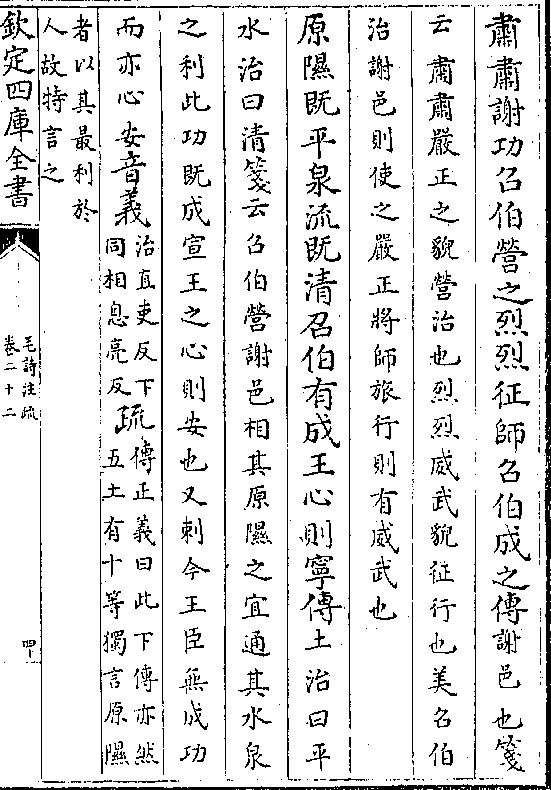 肅肅謝功召伯營之烈烈征師召伯成之傳謝邑也箋
云肅肅嚴正之貌營治也烈烈威武貌征行也美召伯
治謝邑則使之嚴正將師旅行則有威武也
原隰既平泉流既清召伯有成王心則寧傳土治曰平
水治曰清箋云召伯營謝邑相其原隰之宜通其水泉
之利此功既成宣王之心則安也又刺今王臣無成功
而亦心安音義治直吏反下
同相息亮反疏傳正義曰此下傳亦然
五土有十等獨言原隰
者以其最利於
人故特言之
欽定四庫全書
毛詩注疏
卷二十二